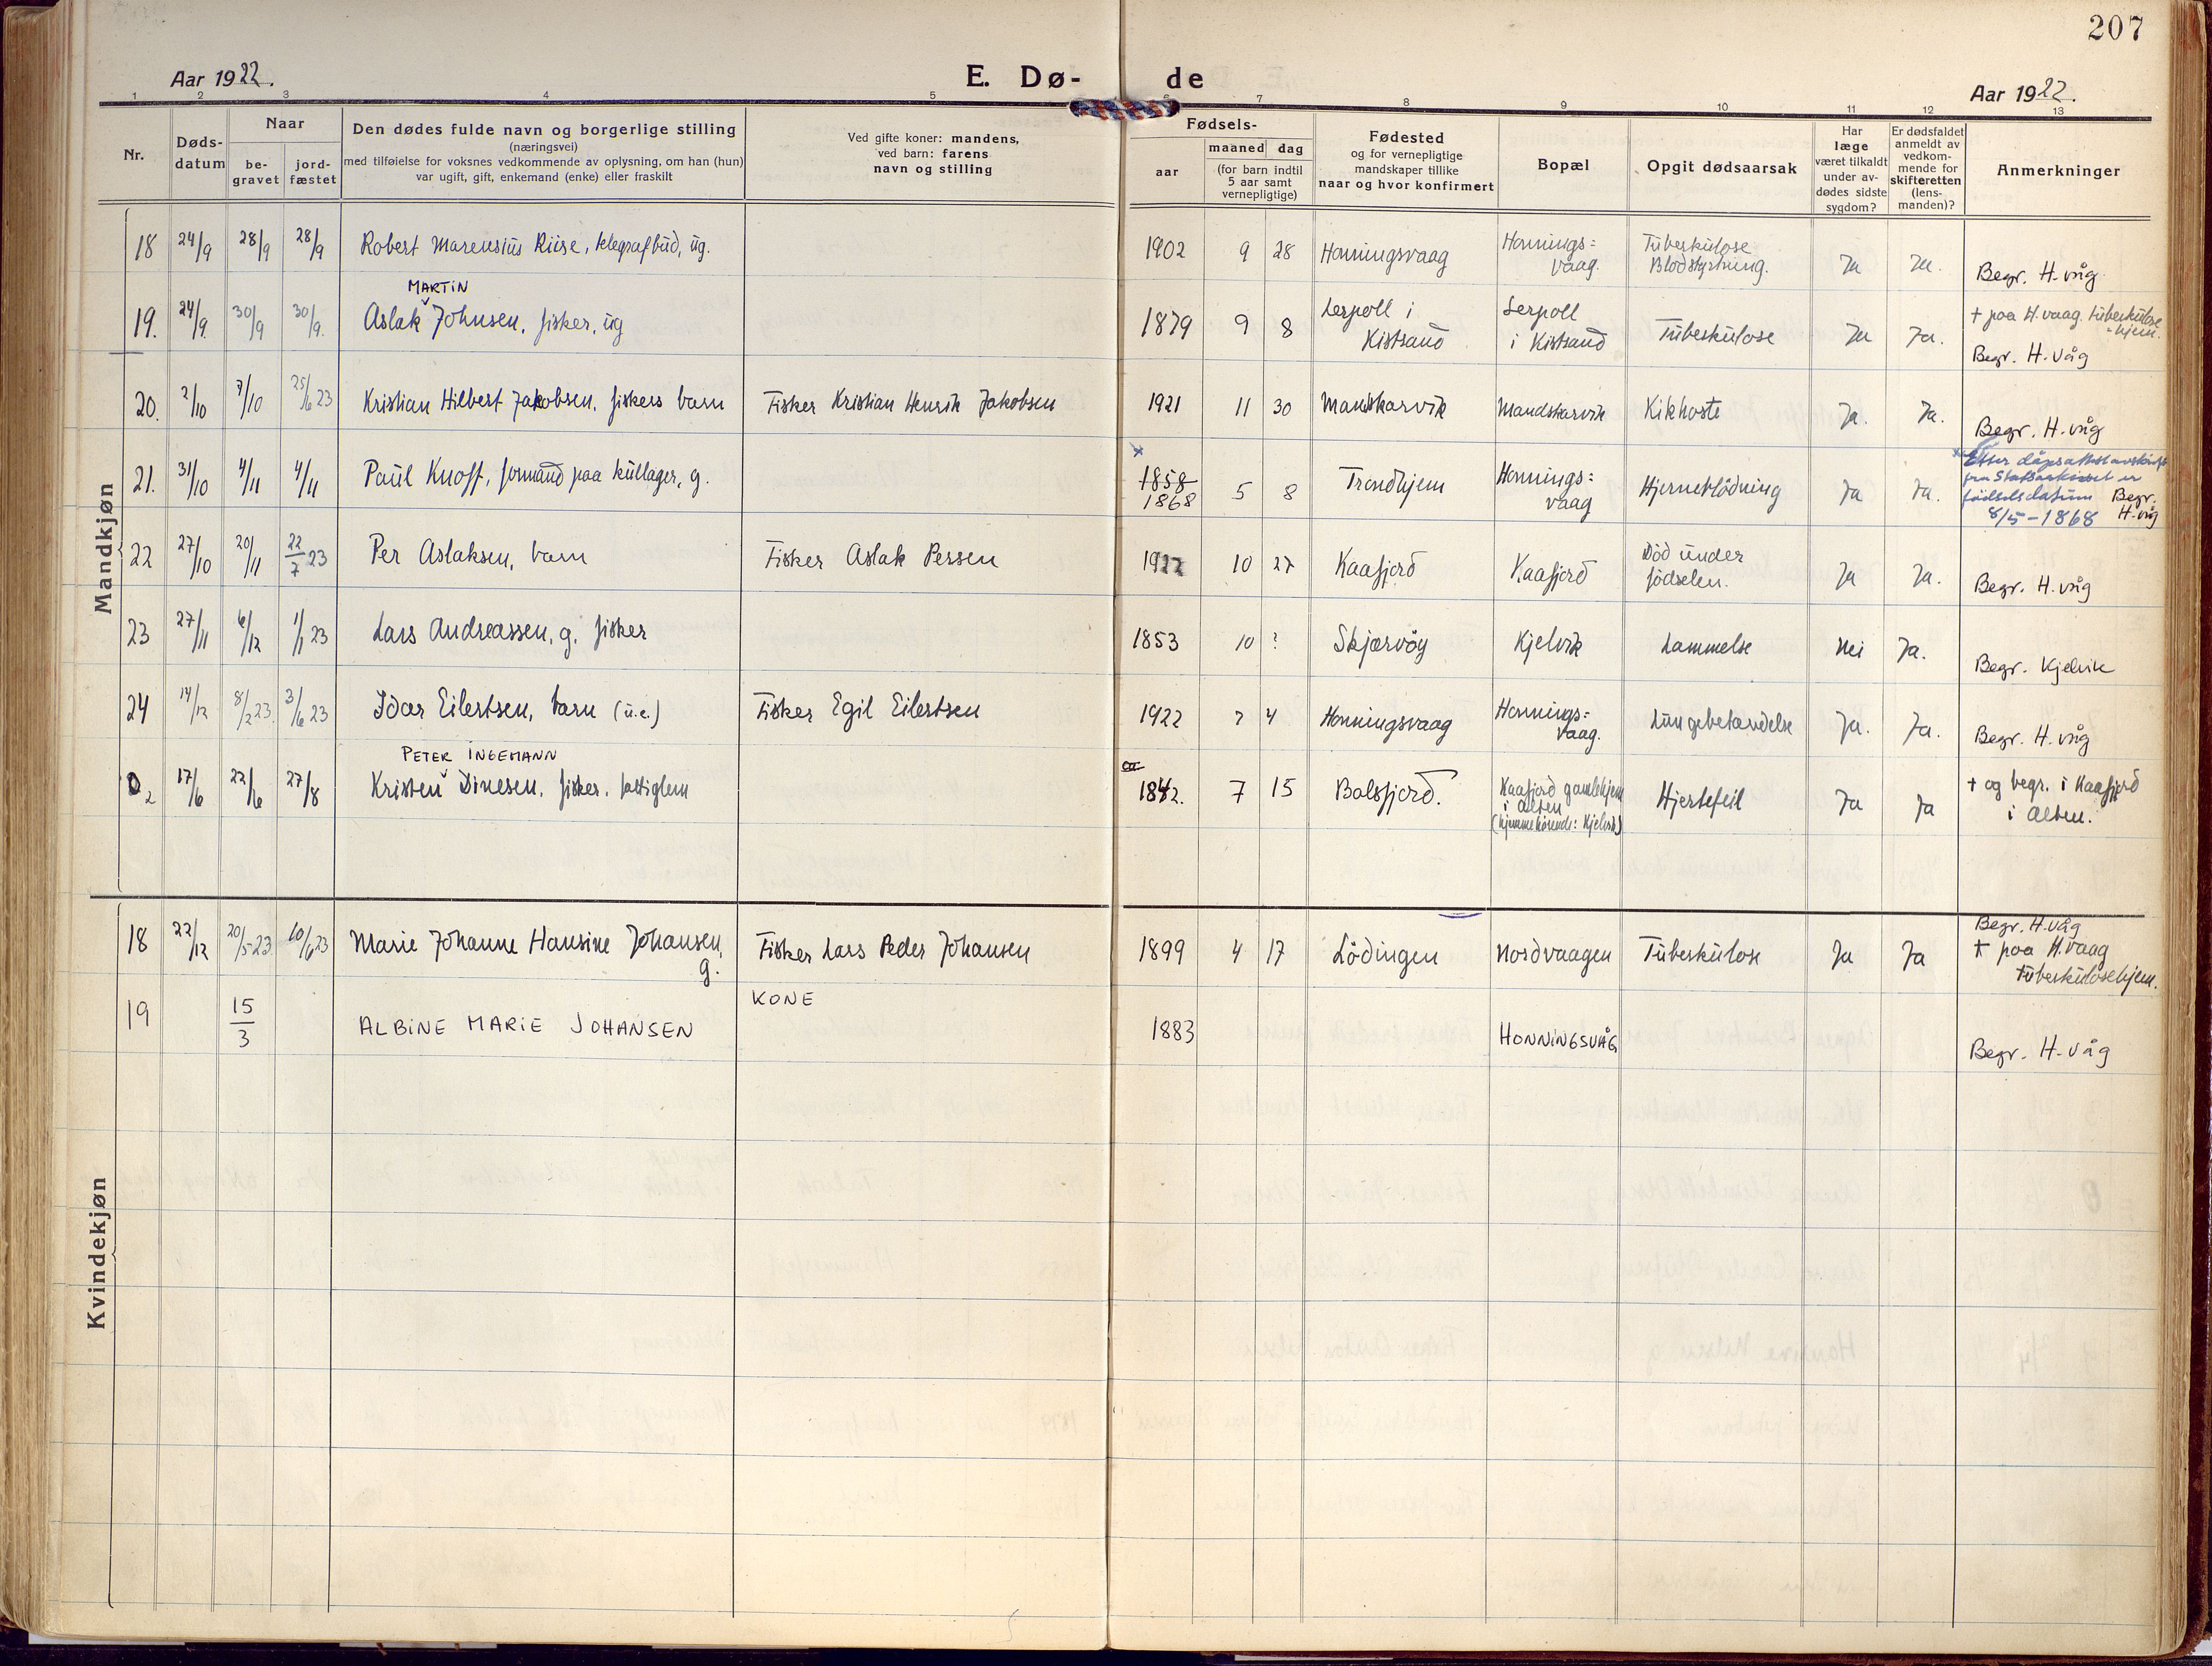 207
Aar 1922.
E. Dø-
de
Aar 1922.
1 2 3 4 5 6 7 8 9 10 11 12 13
Nr.
Døds-
datum
Naar
be-
gravet
jord-
fæstet
Den dødes fulde navn og borgerlige stilling
(næringsvei)
med tilføielse for voksnes vedkommende av oplysning, om han (hun)
var ugift, gift, enkemand (enke) eller fraskilt
Ved gifte koner: mandens,
ved barn: farens
navn og stilling
Fødsels-
aar
maaned dag
(for barn indtil
5 aar samt
vernepligtige)
Fødested
og for vernepligtige
mandskaper tillike
naar og hvor konfirmert
Bopæl
Opgit dødsaarsak
Har
læge
været tilkaldt
under av-
dødes sidste
sygdom?
Er dødsfaldet
anmeldt av
vedkom-
mende for
skifteretten
(lens-
manden)?
Anmerkninger
Mandkjøn
18 24/9 28/9 28/9 Robert Marensius Riise, telegrafbud, ug. 1902 9 28 Honningsvaag Honnings= Tuberkulose
vaag. Blodstyrtning. Ja Ja. Begr. H.våg
MARTIN
19. 24/9. 30/9 30/9. Aslak Johnsen, fisker, ug 1879 9 8 Lerpoll i Lerpoll Tuberkulose Ja Ja. + paa H.vaag. tuberkulose
Kistrand i Kistrand -hjem.
Begr. H.våg
20. 2/10 7/10 25/6 23 Kristian Hilbert Jakobsen, fiskers barn Fisker Kristian Henrik Jakobsen 1921 11 30 Mandskarvik Mandskarvik Kikhoste Ja. Ja. Begr. H.våg
x
21. 31/10 4/11 4/11 Paul Knoff, formand paa kullager, g. 1858 5 8 Trondhjem Honnings= Hjerneblödning Ja Ja. x Efter dåpsattest avskrift
1868 vaag fra Statsarkivet er
fødselsdatum Begr.
8/5-1868 H.våg
22 27/10 20/11 22/7 23 Per Aslaksen, barn Fisker Aslak Persen 1922 10 27 Kaafjord Kaafjord Död under
födselen. Ja Ja. Begr. H.våg
23 27/11 6/12 1/1 23 Lars Andreassen, g. fisker 1853 10 ? Skjærvöy Kjelvik Lammelse Nei Ja. Begr. Kjelvik
24 14/12 8/2 23. 3/6 23 Idar Eilertsen, barn (u.e.) Fisker Egil Eilertsen 1922 7 4 Honningsvaag Honnings= Lungebetændelse Ja. Ja.
vaag. Begr. H.våg
PETER INGEMANN
ca
02 17/6 22/6 27/8 Kristen Dinesen, fisker, fattiglem 1842. 7 15 Balsfjord. Kaafjord gamlehjem Hjertefeil Ja Ja + og begr. i Kaafjord
i Alten i Alten.
(hjemmehörende: Kjelvik)
Kvindekjøn
Begr. H.våg
18 22/12 20/5 23. 10/6 23 Marie Johanne Hansine Johansen, Fisker Lars Peder Johansen 1899 4 17 Lödingen Nordvaagen Tuberkulose Ja Ja + paa H.vaag
g. tuberkulosehjem.
KONE
19 15/3 ALBINE MARIE JOHANSEN 1883 HONNINGSVÅG Begr. H.våg